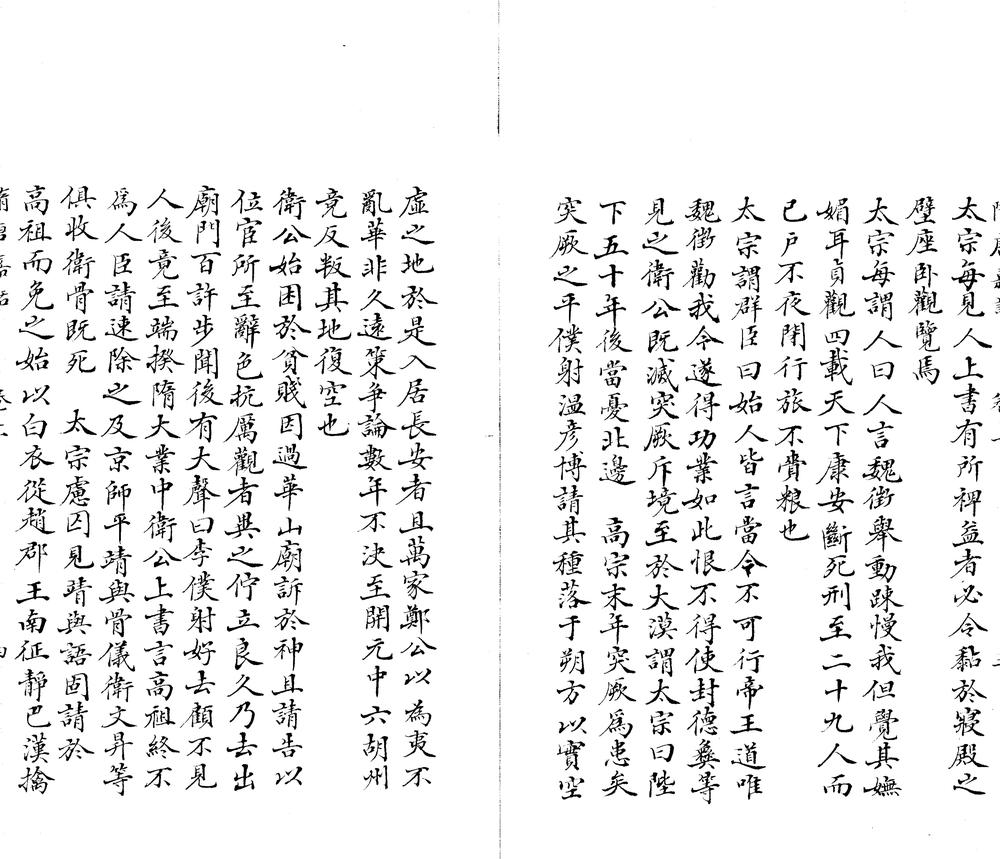 太宗每見人上書有所裨益者必令黏於寢殿之
壁座卧觀覽焉
太宗每謂人曰人言魏徴舉動踈慢我但覺其嫵
媚耳貞觀四載天下康安斷死刑至二十九人而
已戶不夜閉行旅不賫粮也
太宗謂群臣曰始人皆言當今不可行帝王道唯
魏徴勸我今遂得功業如此恨不得使封德彝等
見之衛公既滅突厥斥境至於大漠謂太宗曰陛
下五十年後當憂北邊　高宗末年突厥爲患矣
突厥之平僕射温彦博請其種落于朔方以實空
虛之地於是入居長安者且萬家鄭公以為夷不
亂華非久遠策争論數年不決至開元中六胡州
竟反叛其地復空也
衛公始困於貧賤因過華山廟訴於神且請告以
位宦所至辭色抗厲觀者異之佇立良久乃去出
廟門百許步聞後有大聲曰李僕射好去顧不見
人後竟至端揆隋大業中衛公上書言高祖終不
爲人臣請速除之及京師平靖與骨儀衛文昇等
俱收衛骨既死　太宗慮囚見靖與語固請於
高祖而免之始以白衣從趙郡王南征靜巴漢擒